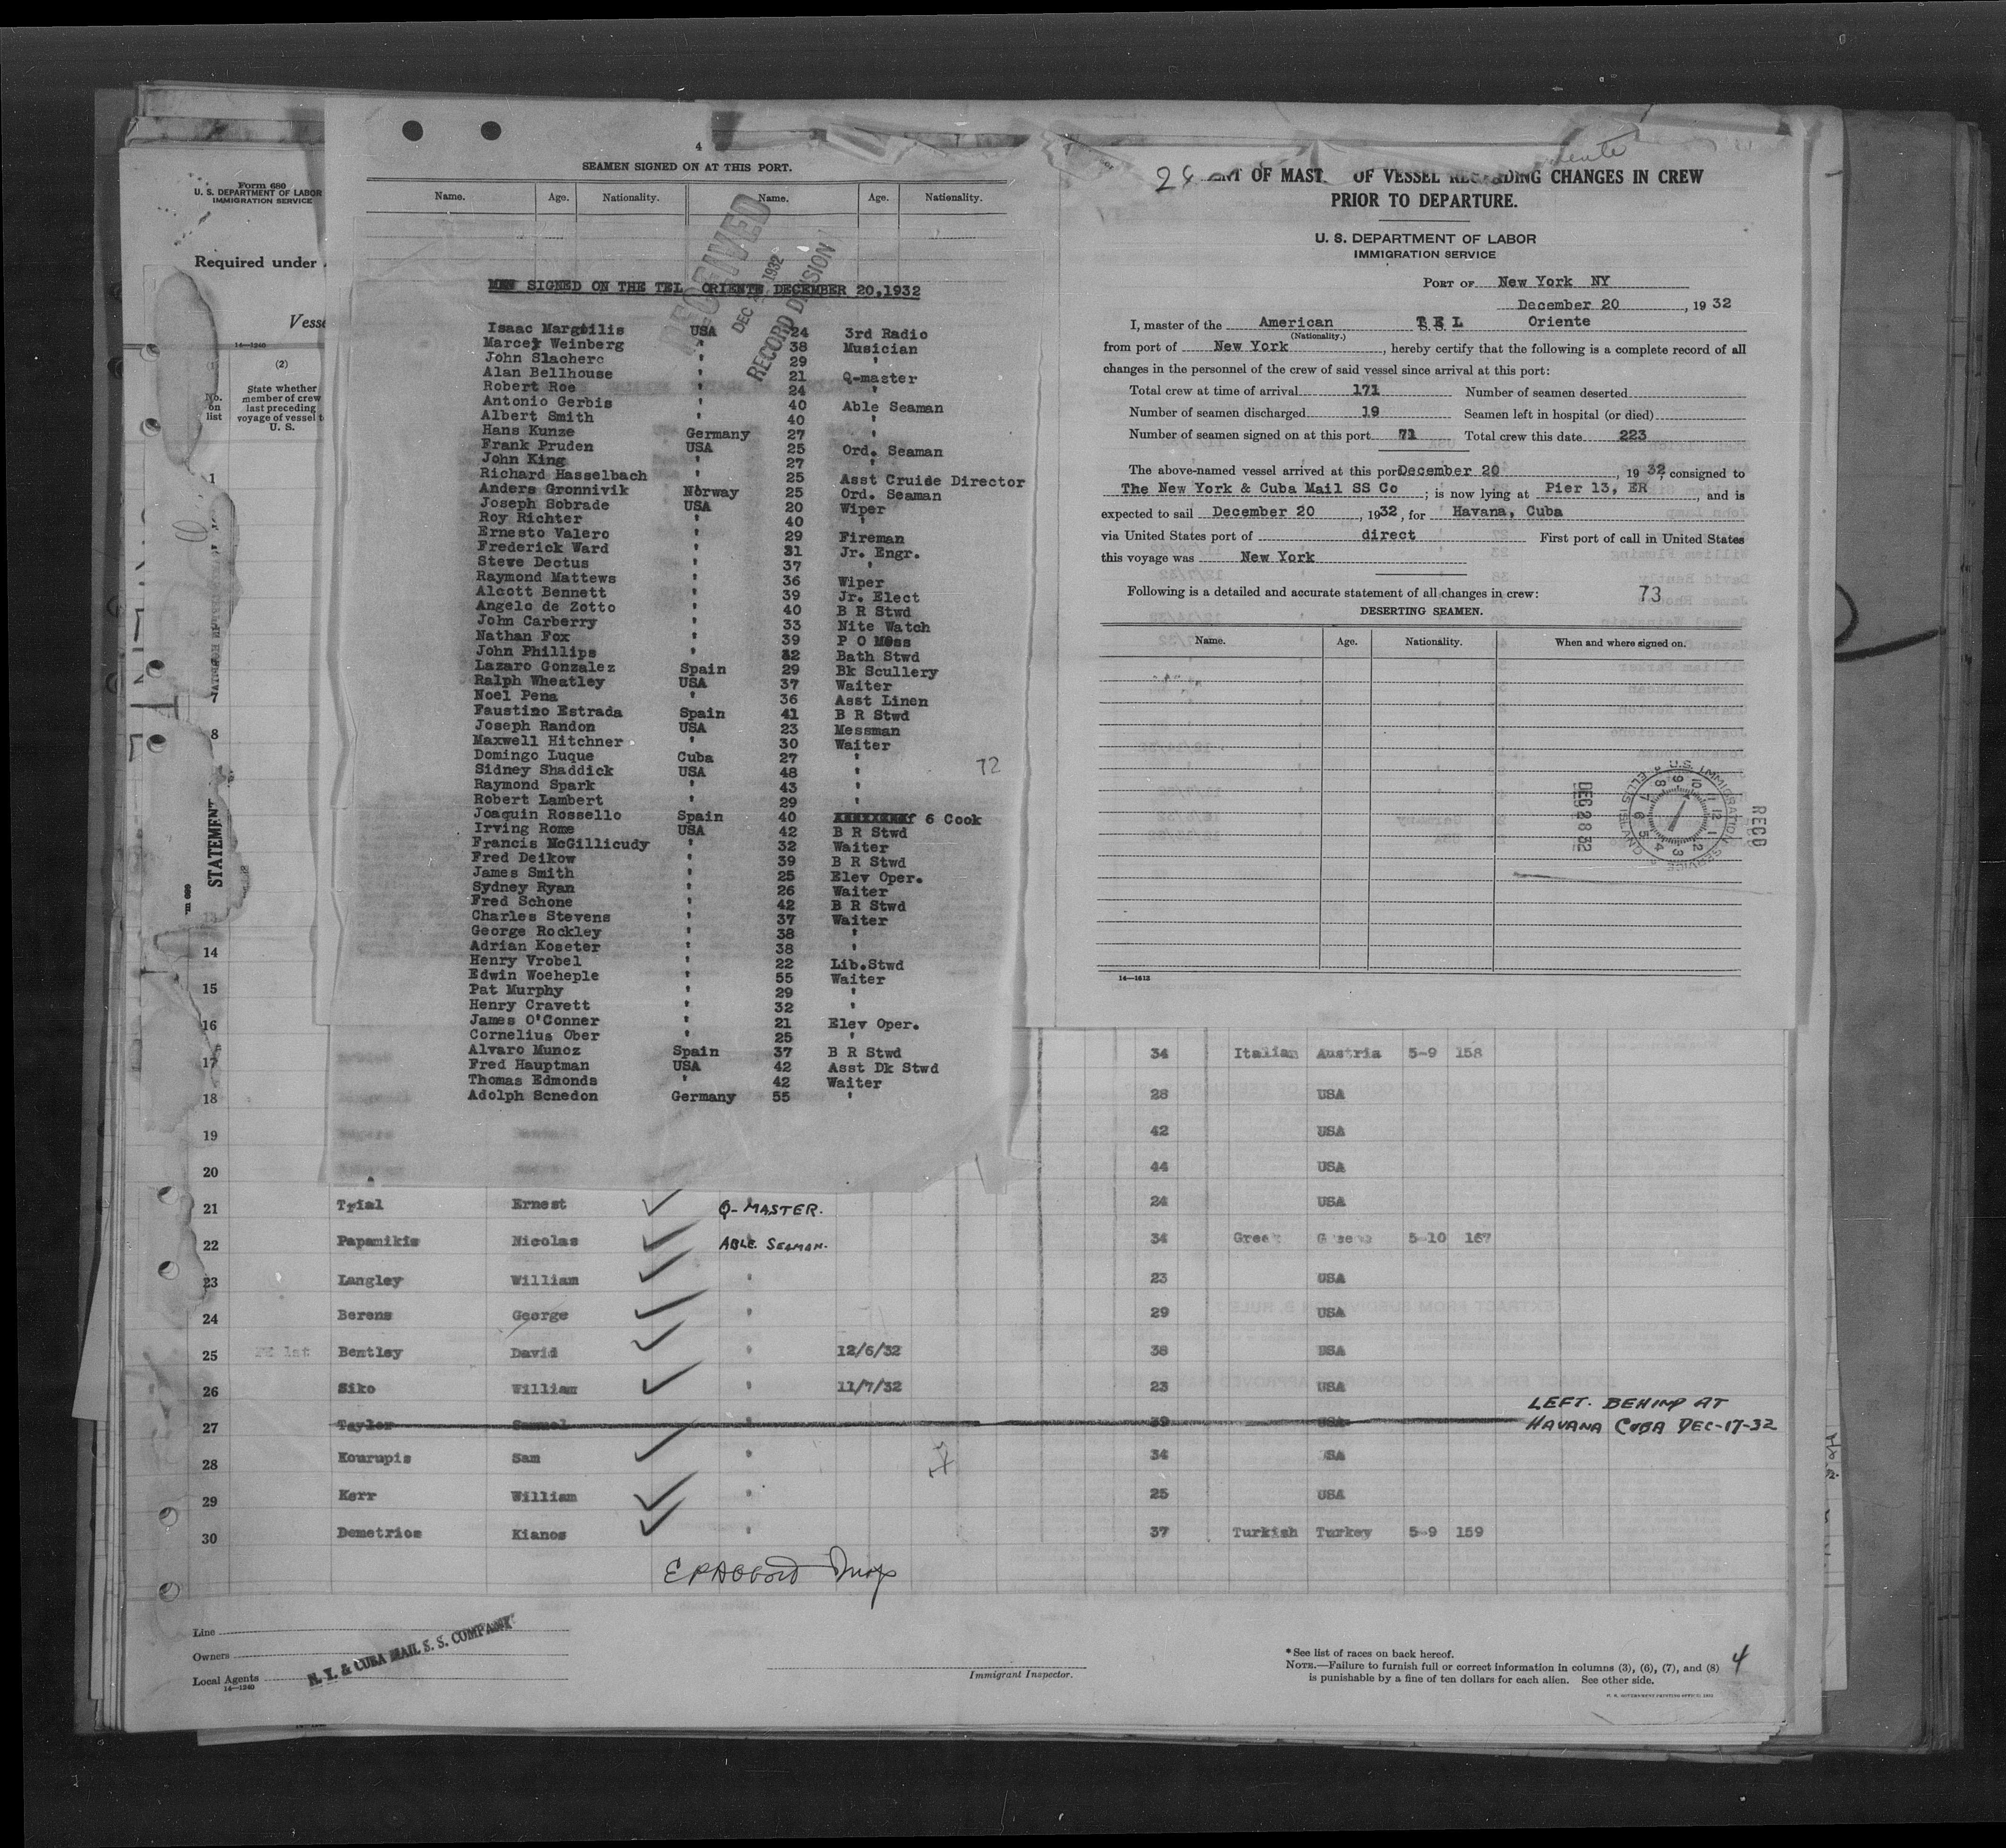 4
SEAMEN SIGNED ON AT THIS PORT.
Name. Age. Nationality. Name. Age. Nationality.
RECEIVED
DEC 1932
RECORD DIVISION
MEN SIGNED ON THE TEL ORIENTE DECEMBER 20,1932
Isaac Margoilis USA 24 3rd Radio
Marcey Weinberg " 38 Musician
John Slacherc " 29 "
Alan Bellhouse " 21 Q-master
Robert Roe " 24 "
Antonio Gerbis " 40 Able Seaman
Albert Smith " 40 "
Hans Kunze Germany 27 "
Frank Pruden USA 25 Ord. Seaman
John King " 27 "
Richard Hasselbach " 25 Asst Cruide Director
Anders Gronnivik Norway 25 Ord. Seaman
Joseph Sobrade USA 20 Wiper
Roy Richter " 40 "
Ernesto Valero " 29 Fireman
Frederick Ward " 31 Jr. Engr.
Steve Dectus " 37 "
Raymond Mattews " 36 Wiper
Alcott Bennett " 39 Jr. Elect
Angelo de Zotto " 40 B R Stwd
John Carberry " 33 Nite Watch
Nathan Fox " 39 P O Mess
John Phillips " 32 Bath Stwd
Lazaro Gonzalez Spain 29 Bk Scullery
Ralph Wheatley USA 37 Waiter
Noel Pena " 36 Asst Linen
Faustino Estrada Spain 41 B R Stwd
Joseph Randon USA 23 Messman
Maxwell Hitchner " 30 Waiter
Domingo Luque Cuba 27 "
Sidney Shaddick USA 48 "
72
Raymond Spark " 43 "
Robert Lambert " 29 "
Joaquin Rossello Spain 40 6 Cook
Irving Rome USA 42 B R Stwd
Francis McGillicudy " 32 Waiter
Fred Deikow " 39 B R Stwd
James Smith " 25 Elev Oper.
Sydney Ryan " 26 Waiter
Fred Schone " 42 B R Stwd
Charles Stevens " 37 Waiter
George Rockley " 38 "
Adrian Koseter " 38 "
Henry Vrobel " 22 Lib.Stwd
Edwin Woeheple " 55 Waiter
Pat Murphy " 29 "
Henry Cravett " 32 "
James O'Conner " 21 Elev Oper.
Cornelius Ober " 25 "
Alvaro Munoz Spain 37 B R Stwd
Fred Hauptman USA 42 Asst Dk Stwd
Thomas Edmonds " 42 Waiter
Adolph Scnedon Germany 55 "
OF VESSEL REGARDING CHANGES IN CREW
PRIOR TO DEPARTURE.
U. S. DEPARTMENT OF LABOR
IMMIGRATION SERVICE
PORT OF New York NY
December 20, 1932
I, master of the American TEL Oriente
(Nationality.)
from port of New York, hereby certify that the following is a complete record of all
changes in the personnel of the crew of said vessel since arrival at this port:
Total crew at time of arrival 171 Number of seamen deserted
Number of seamen discharged 19 Seamen left in hospital (or died)
Number of seamen signed on at this port 71 Total crew this date 223
The above-named vessel arrived at this port December 20, 1932, consigned to
The New York & Cuba Mail SS Co; is now lying at Pier 13, ER, and is
expected to sail December 20, 1932, for Havana, Cuba
via United States port of direct First port of call in United States
this voyage was New York
Following is a detailed and accurate statement of all changes in crew: 73
DESERTING SEAMEN.
Name. Age. Nationality. When and where signed on.
DEC 28 32
U.S. IMMIGRATION SERVICE ELLIS ISLAND
RECD
14—1613
Form 680
U. S. DEPARTMENT OF LABOR
IMMIGRATION SERVICE
Required under
14—1240
(2)
No. on list
State whether
member of crew
last preceding
voyage of vessel to
U. S.
STATEMENT
1
7
8
13
14
15
16
17 34 Italian Austria 5-9 158
18 28 USA
19 42 USA
20 44 USA
21 Trial Ernest Q-MASTER. 24 USA
22 Papamikis Nicolas ABLE SEAMAN. 34 Greek Greece 5-10 167
23 Langley William " 23 USA
24 Berens George " 29 USA
25 1st Bentley David " 12/6/32 38 USA
26 Siko William " 11/7/32 23 USA
27 Taylor Samuel " 39 USA LEFT. BEHIND AT
HAVANA CUBA DEC-17-32
28 Kourupis Sam " 34 USA
29 Kerr William " 25 USA
30 Demetrios Kianos " 37 Turkish Turkey 5-9 159
Line
Owners
Local Agents N. Y. & CUBA MAIL S. S. COMPANY
14—1240
Immigrant Inspector.
* See list of races on back hereof.
NOTE.—Failure to furnish full or correct information in columns (3), (6), (7), and (8)
is punishable by a fine of ten dollars for each alien. See other side.
4